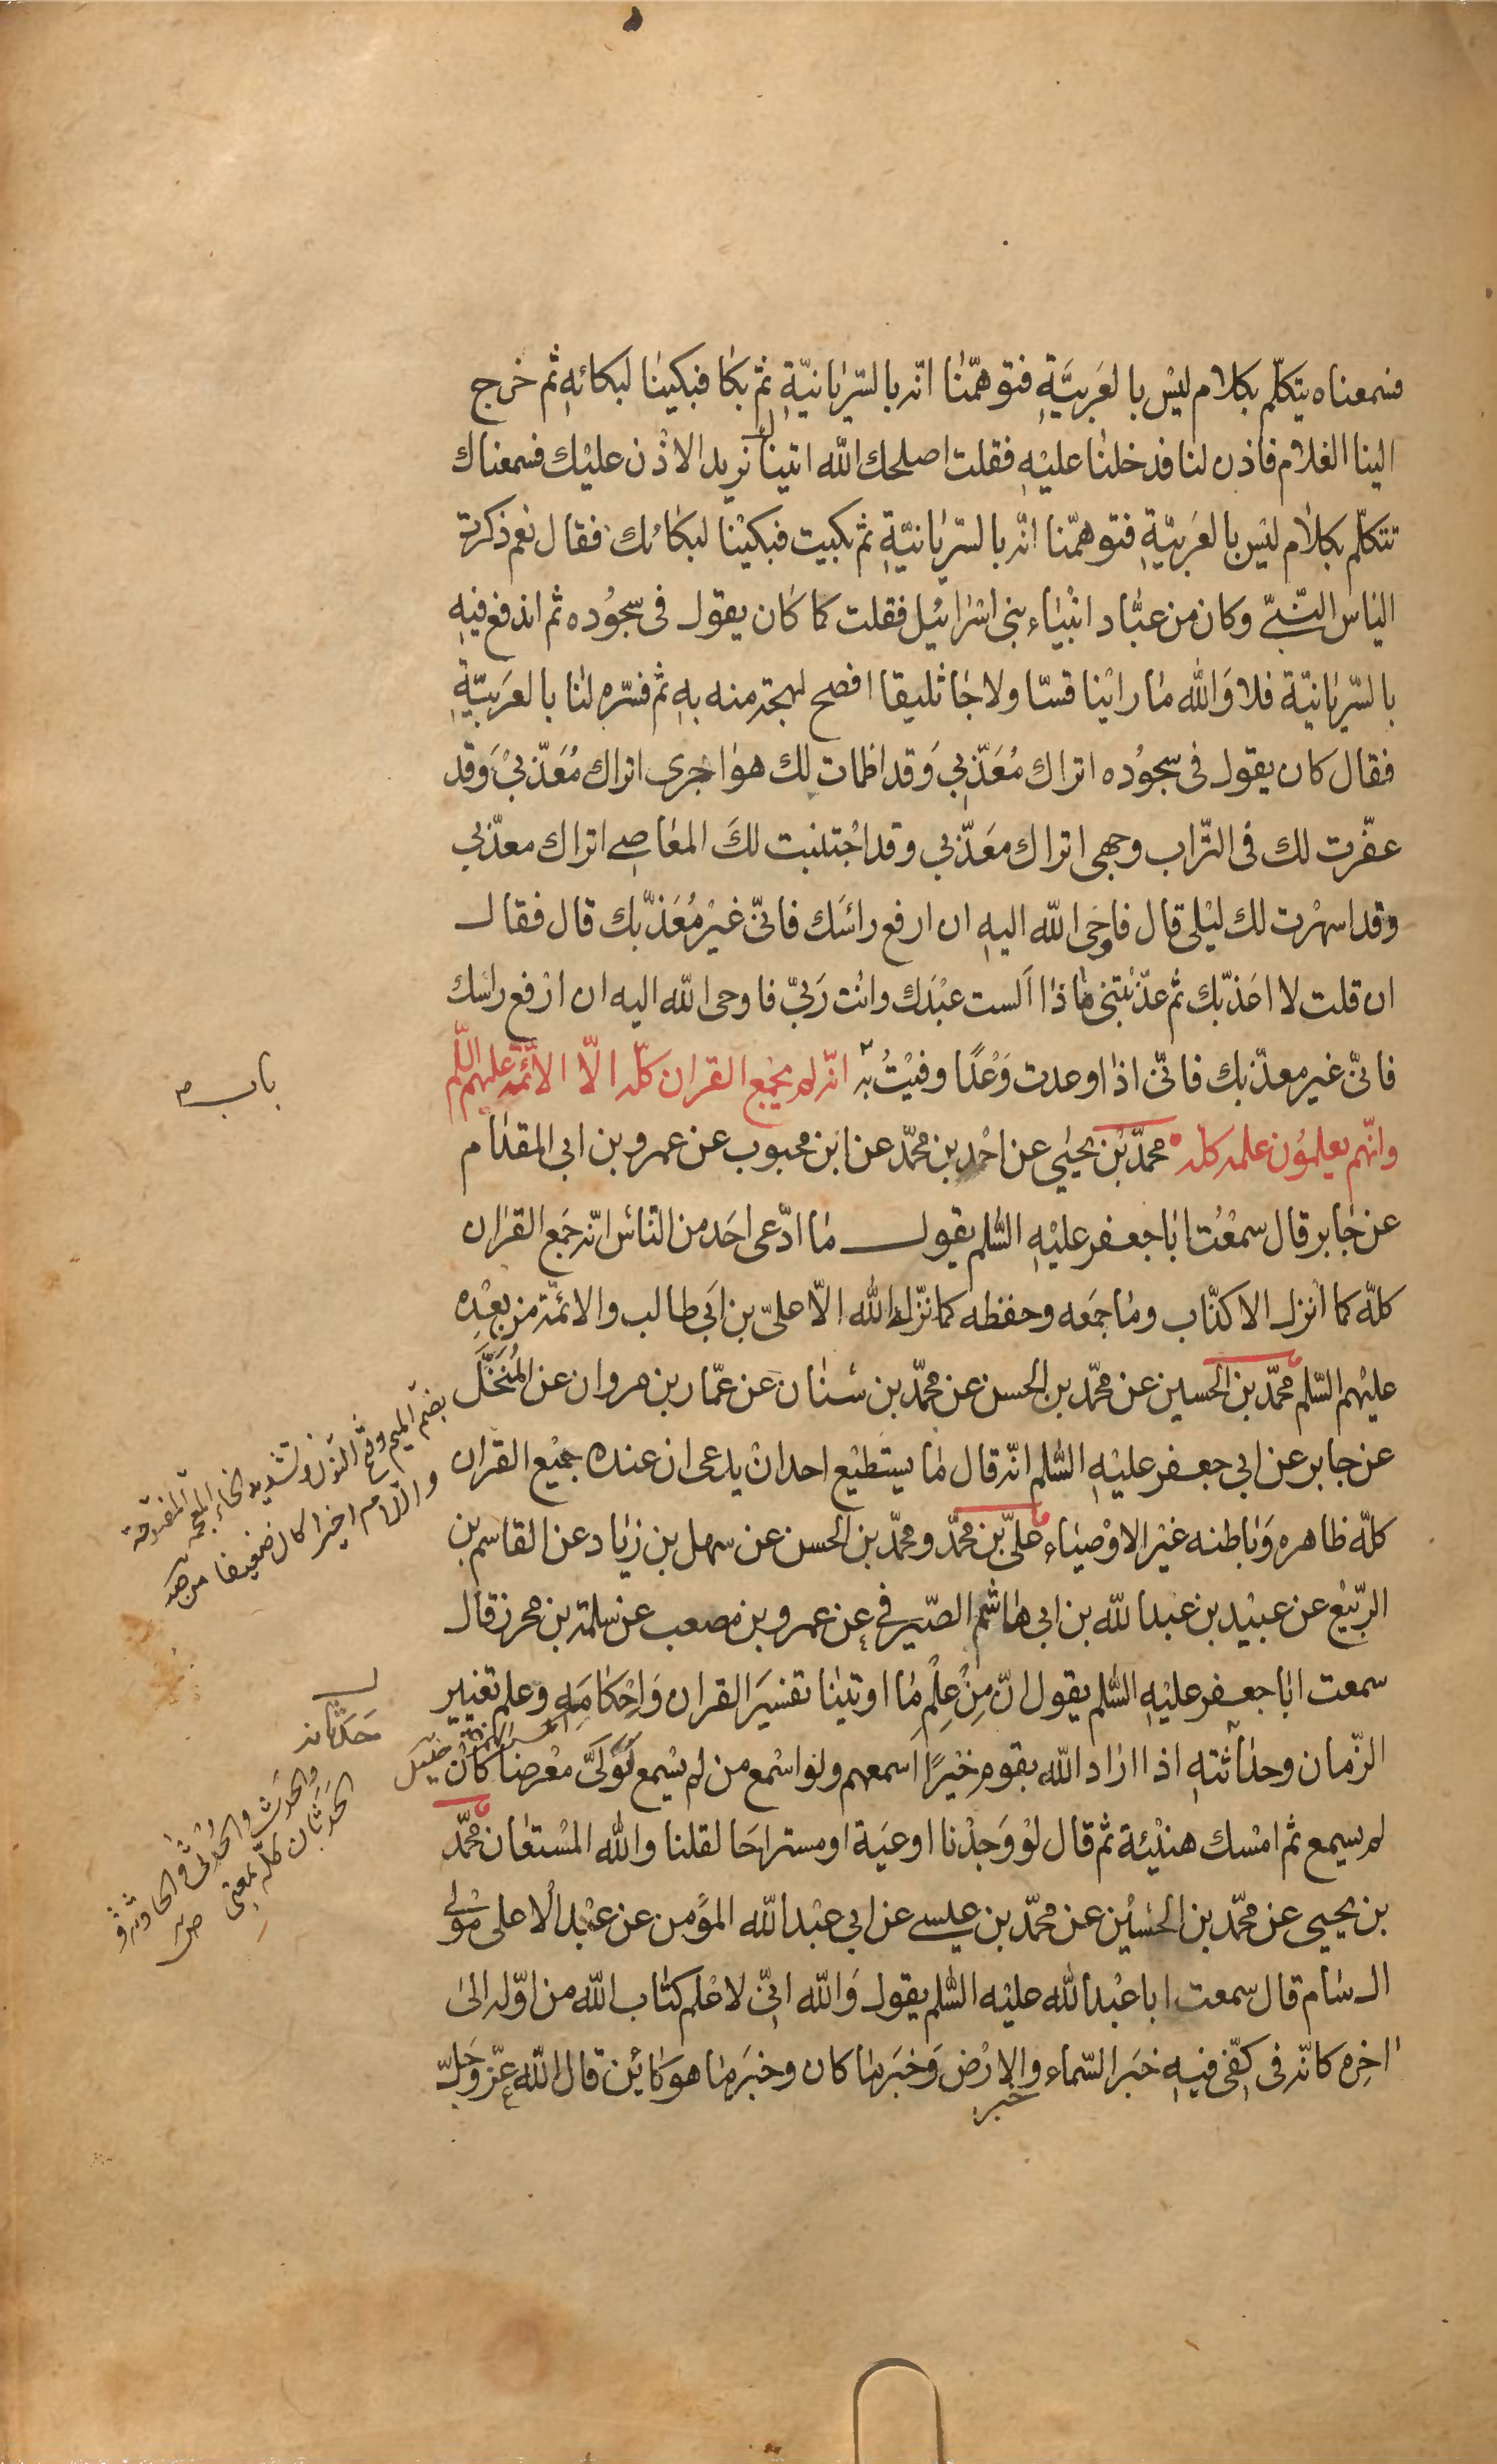 فسمعناه يتكلّم بكلام ليْس بالعَربيَّةِ فتوهّمْنا انّه بالسّريانيّةِ ثمّ بكا فبكينا لبكائهِ ثم خرج
الينا الغلام فاذن لنا فدخلنا عليْهِ فقلت اصلحك الله اتيناك نريد الاذْن عليْك فسمعناك
تتكلّم بكلام ليْس بالعَربيّةِ فتوهمّنا انّه بالسّريانيّةِ ثم بكيت فبكيْنا لبكائك فقال نعم ذكرت
الياس النّبىّ وكان من عبّاد انْبياء بنى اسْرائيل فقلت كما كان يقول فى سجُوده ثم اندفع فيهِ
بالسّريانيّة فلا وَالله ما رايْنا قسّا ولا جاثليقا افصح لهجة منه بهِ ثم فسّره لنا بالعَربيّةِ
فقال كان يقول فى سجوُده اتراك مُعَذّبي وَقد اظمات لك هواجرى اتراك مُعَذّبيْ وَقد
عفّرت لك فى التّراب وجهى اتراك معَذّبي وقد اجْتنبت لكَ المعاصى اتراك معذّبي
وقد اسهرْت لك ليْلى قال فاوحَى الله اليهِ ان ارفع رائسَك فانّى غيْر مُعَذّبك قال فقال
ان قلت لا اعَذّبك ثم عذّبْتنى ماذا اَلست عبْدَك وانْت رَبّي فاوحى الله اليه ان ارْفع راسك
فانّى غير معذّبك فانّى اذا وعدت وَعْدًا وفيْتُ به انّه لم يجْمع القران كلّه الّا الائمّة عليهم السّلم
وانّهم يعلمُون علمه كله محمّد بْن يحيٰى عن احْمد بن محمّد عن ابْن محبوب عن عمرو بن ابى المقدام
عن جابر قال سمعْتُ ابا جعفر عليْهِ السّلم يقول ما ادّعى احَد من النّاس انّه جمَع القران
كلّه كما انْزل الا كذّاب وما جمَعه وحفظه كما نزّله الله الّا علىّ بن ابَي طالب والائمّة من بعْدِه
عليْهم السّلم محمّد بن الحسين عن محمّد بن الحسن عن محمّد بن سنان عن عمّار بن مروان عن المُنَخَّل
عن جابر عن ابي جعفر عليْهِ السّلم انّه قال ما يستطيْع احد انْ يدعى ان عنده جميْع القران
كلّه ظاهره وَباطنه غيْر الاوْصياء علىّ بن محمّد ومحمّد بن الحسن عن سهل بن زياد عن القاسم بن
الربّيْع عن عبيْد بن عبد الله بن ابي هاشم الصّيرفى عن عمرو بن مصعب عن سلمة بن محرز قال
سمعت ابا جعفر عليْهِ السّلم يقول انّ مِنْ عِلْم ما اوتينا تفسيَر القران وَاحْكامَه وعلم تغيير
الزّمان وحدَاثته اذا اراد الله بقوم خيْرًا اَسمعهم ولو اسْمع من لم يسْمع لَوَلّى معْرضا كان
لم يسمع ثم امْسك هنيْئة ثم قال لوْ وَجدْنا اوعيَة او مستراحَا لقلنا والله المسْتعان محمّد
بن يحيى عن محمّد بن الحسيْن عن محمّد بن عيسى عن ابي عبْد الله المؤمن عن عبْد الاعلى موْلى
ال سام قال سمعت ابا عبْد الله عليْه السّلم يقول وَالله انّي لاعْلم كتاب الله من اوّله الى
اخرِه كانّه فى كفّى فيهِ خبَر السّماء والارْض وَخبَر ما كان وخبَر ما هو كائن قال الله عزّ وَجَلّ
خبر
باب
بضم الميم وفتح النون وتشديد الخاء المعجمة المفتوحة
واللام اخيرا كان ضعيفا
حدثانه
والحدث والحدثى والحادثة و
الحدثان كله بمعنى